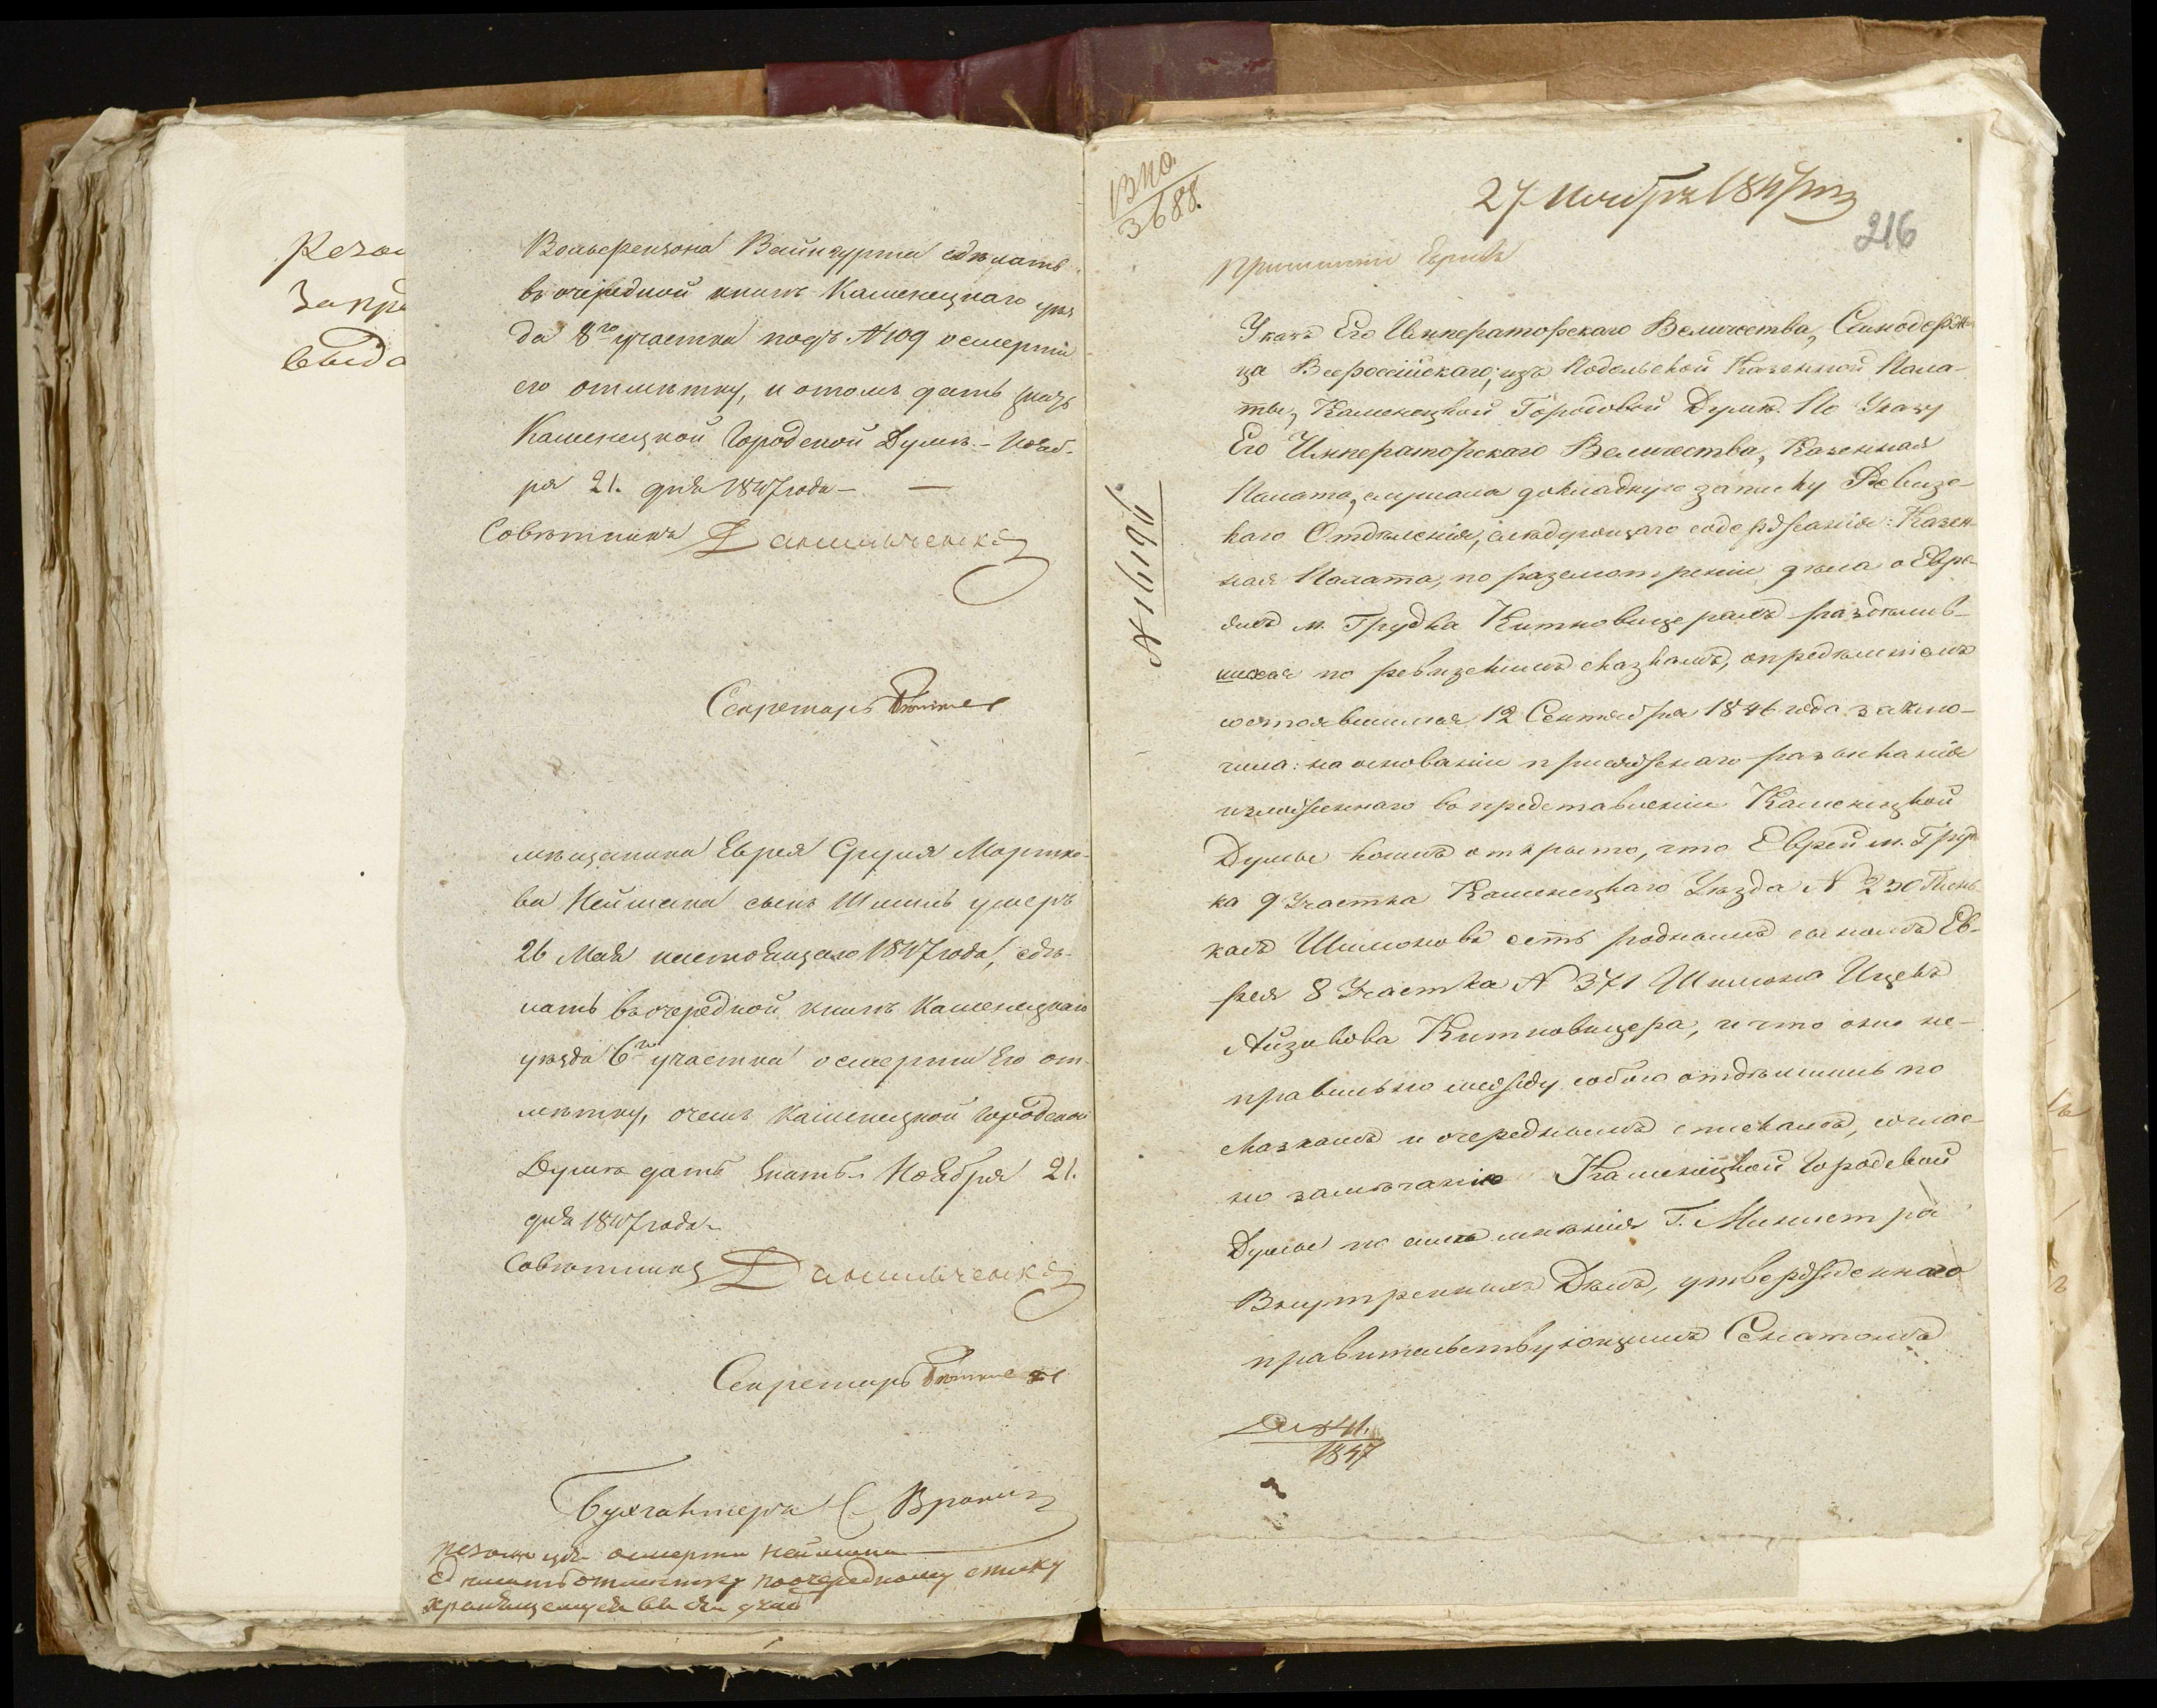 Резо
Запр
выда
Вольфензона Вайнгурта сделать
въ очередной книгѣ Каменецкаго уѣз
да 8го участка подъ №109 о смерти
его отмѣтку, и о томъ дать знать
Каменецкой Городской Думѣ.- Нояб-
ря 21. дня 1847 года —
Совѣтникъ Данильченко
Секретарь
мѣщанина Еврея Сруля Мортко-
ва Неймана сынъ Шмиль умеръ
26 Мая настоящаго 1847 года, сдѣ-
лать въ очередной книгѣ Каменецкаго
уѣзда 6го участка о смерти Его от-
мѣтку, о чемъ Каменецкой Городской
Думѣ дать знать. Ноября 21.
дня 1847 года.
Совѣтникъ Данильченко
Секретарь
Бухгалтеръ
о смерти Неймана
сделать отмѣтку по очередному списку
хранящемуся
Вно
3688.
27 Ноября 1847
216
№ 16196
Указъ Его Императорскаго Величества, Самодерж-
ца Всероссійскаго, изъ Подольской Казенной Пала-
ты, Каменецкой Городовой Думѣ. По Указу
Его Императорскаго Величества, Казенная
Палата, слушала докладную записку Ревизс-
каго Отдѣленія, слѣдующаго содержанія: Казен-
ная Палата, по разсмотреніи дѣла о Евре-
яхъ м. Грудка Китновицерахъ раздѣлив-
шихся по ревизскимъ сказкамъ, опредѣленіемъ
состоявшимся 12 Сентября 1846 года заклю-
чила: на основаніи присяжнаго разысканія
изложеннаго въ представленіи Каменецкой
Думы коимъ открыто, что Еврей м. Груд
ка 9 Участка Каменецкаго Уѣзда № 230 Пинь-
касъ Шимоновъ есть роднымъ сыномъ Ев-
рея 8 Участка № 371 Шимона Ицевъ
Айзикова Китновицера, и что они не-
правильно между собою отдѣлились по
сказкамъ и очереднымъ спискамъ, соглас-
но замѣчанію Каменецкой Городовой
Думы по силѣ мнѣнія Г. Министра
Внутреннихъ Дѣлъ, утвержденнаго
правительствующимъ Сенатомъ
1847